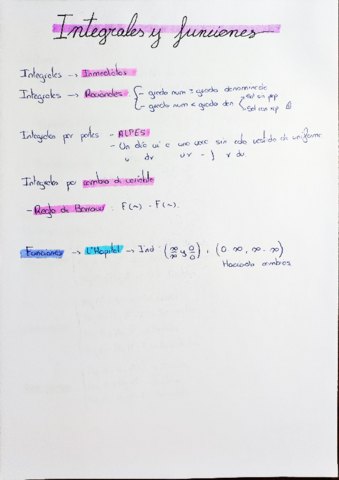 Integrales y funciones
Integrales → Inmediatas
Integrales → Racionales
- grado num ≥ grado denominador
- grado num < grado den
Sol con
Sol con
Integrales por partes - ALPES
- Un día vi una vaca sin vestida de uniforme
u dv uv - ∫ v du
Integrales por cambio de variable
- Regla de Barrow : F(~) - F(~).
Funciones → L'Hopital → Ind : (∞/∞ y 0/0) , (0·∞, ∞-∞)
Haciendo